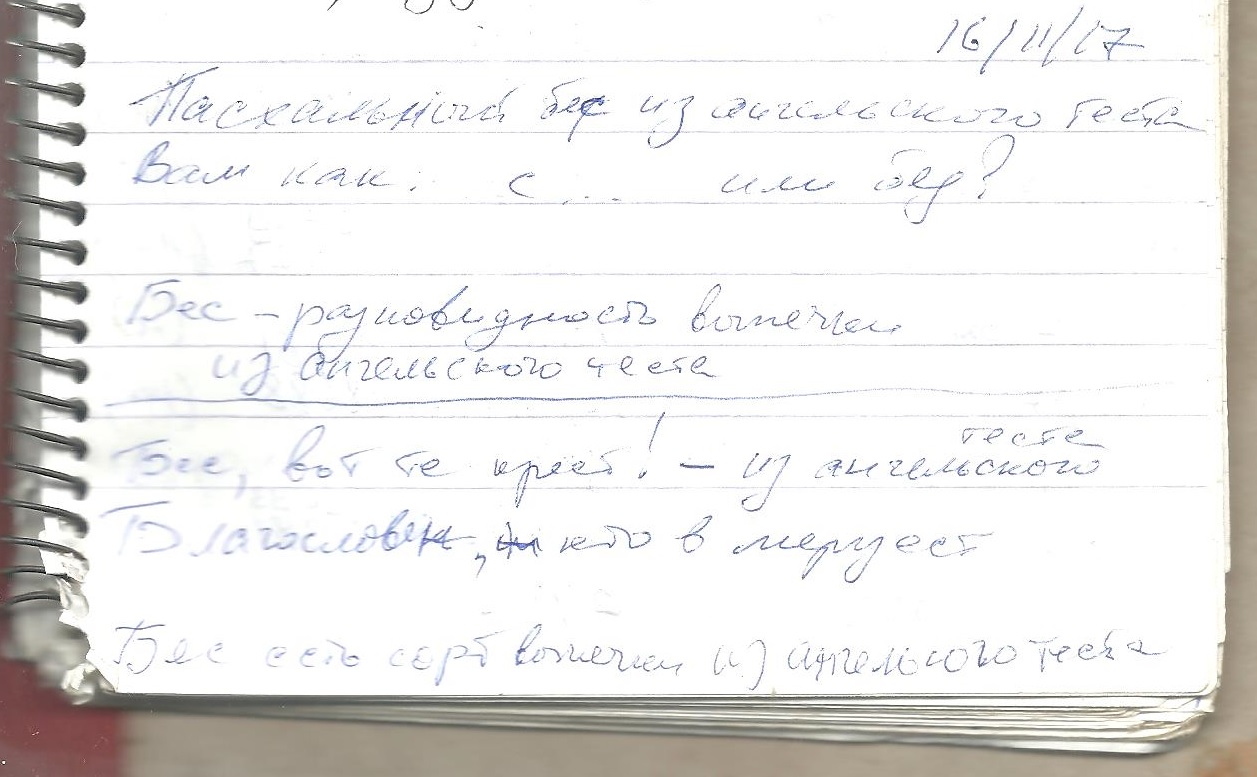 16/11/17
Пасхальный бес из ангельского теста
Вам как: с ... или без?
Бес – разновидность выпечки
из ангельского теста
теста
Бес, вот те крест! – из ангельского
Благословен, кто в меру ест
Бес есть сорт выпечки из ангельского теста